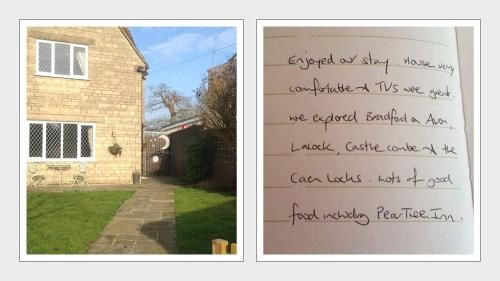 Enjoyed our stay. House very
comfortable & TVs were great.
we explored Bradford a Avon,
Lacock, Castle combe & the
Caen Locks. Lots of good
food including Pear Tree Inn.